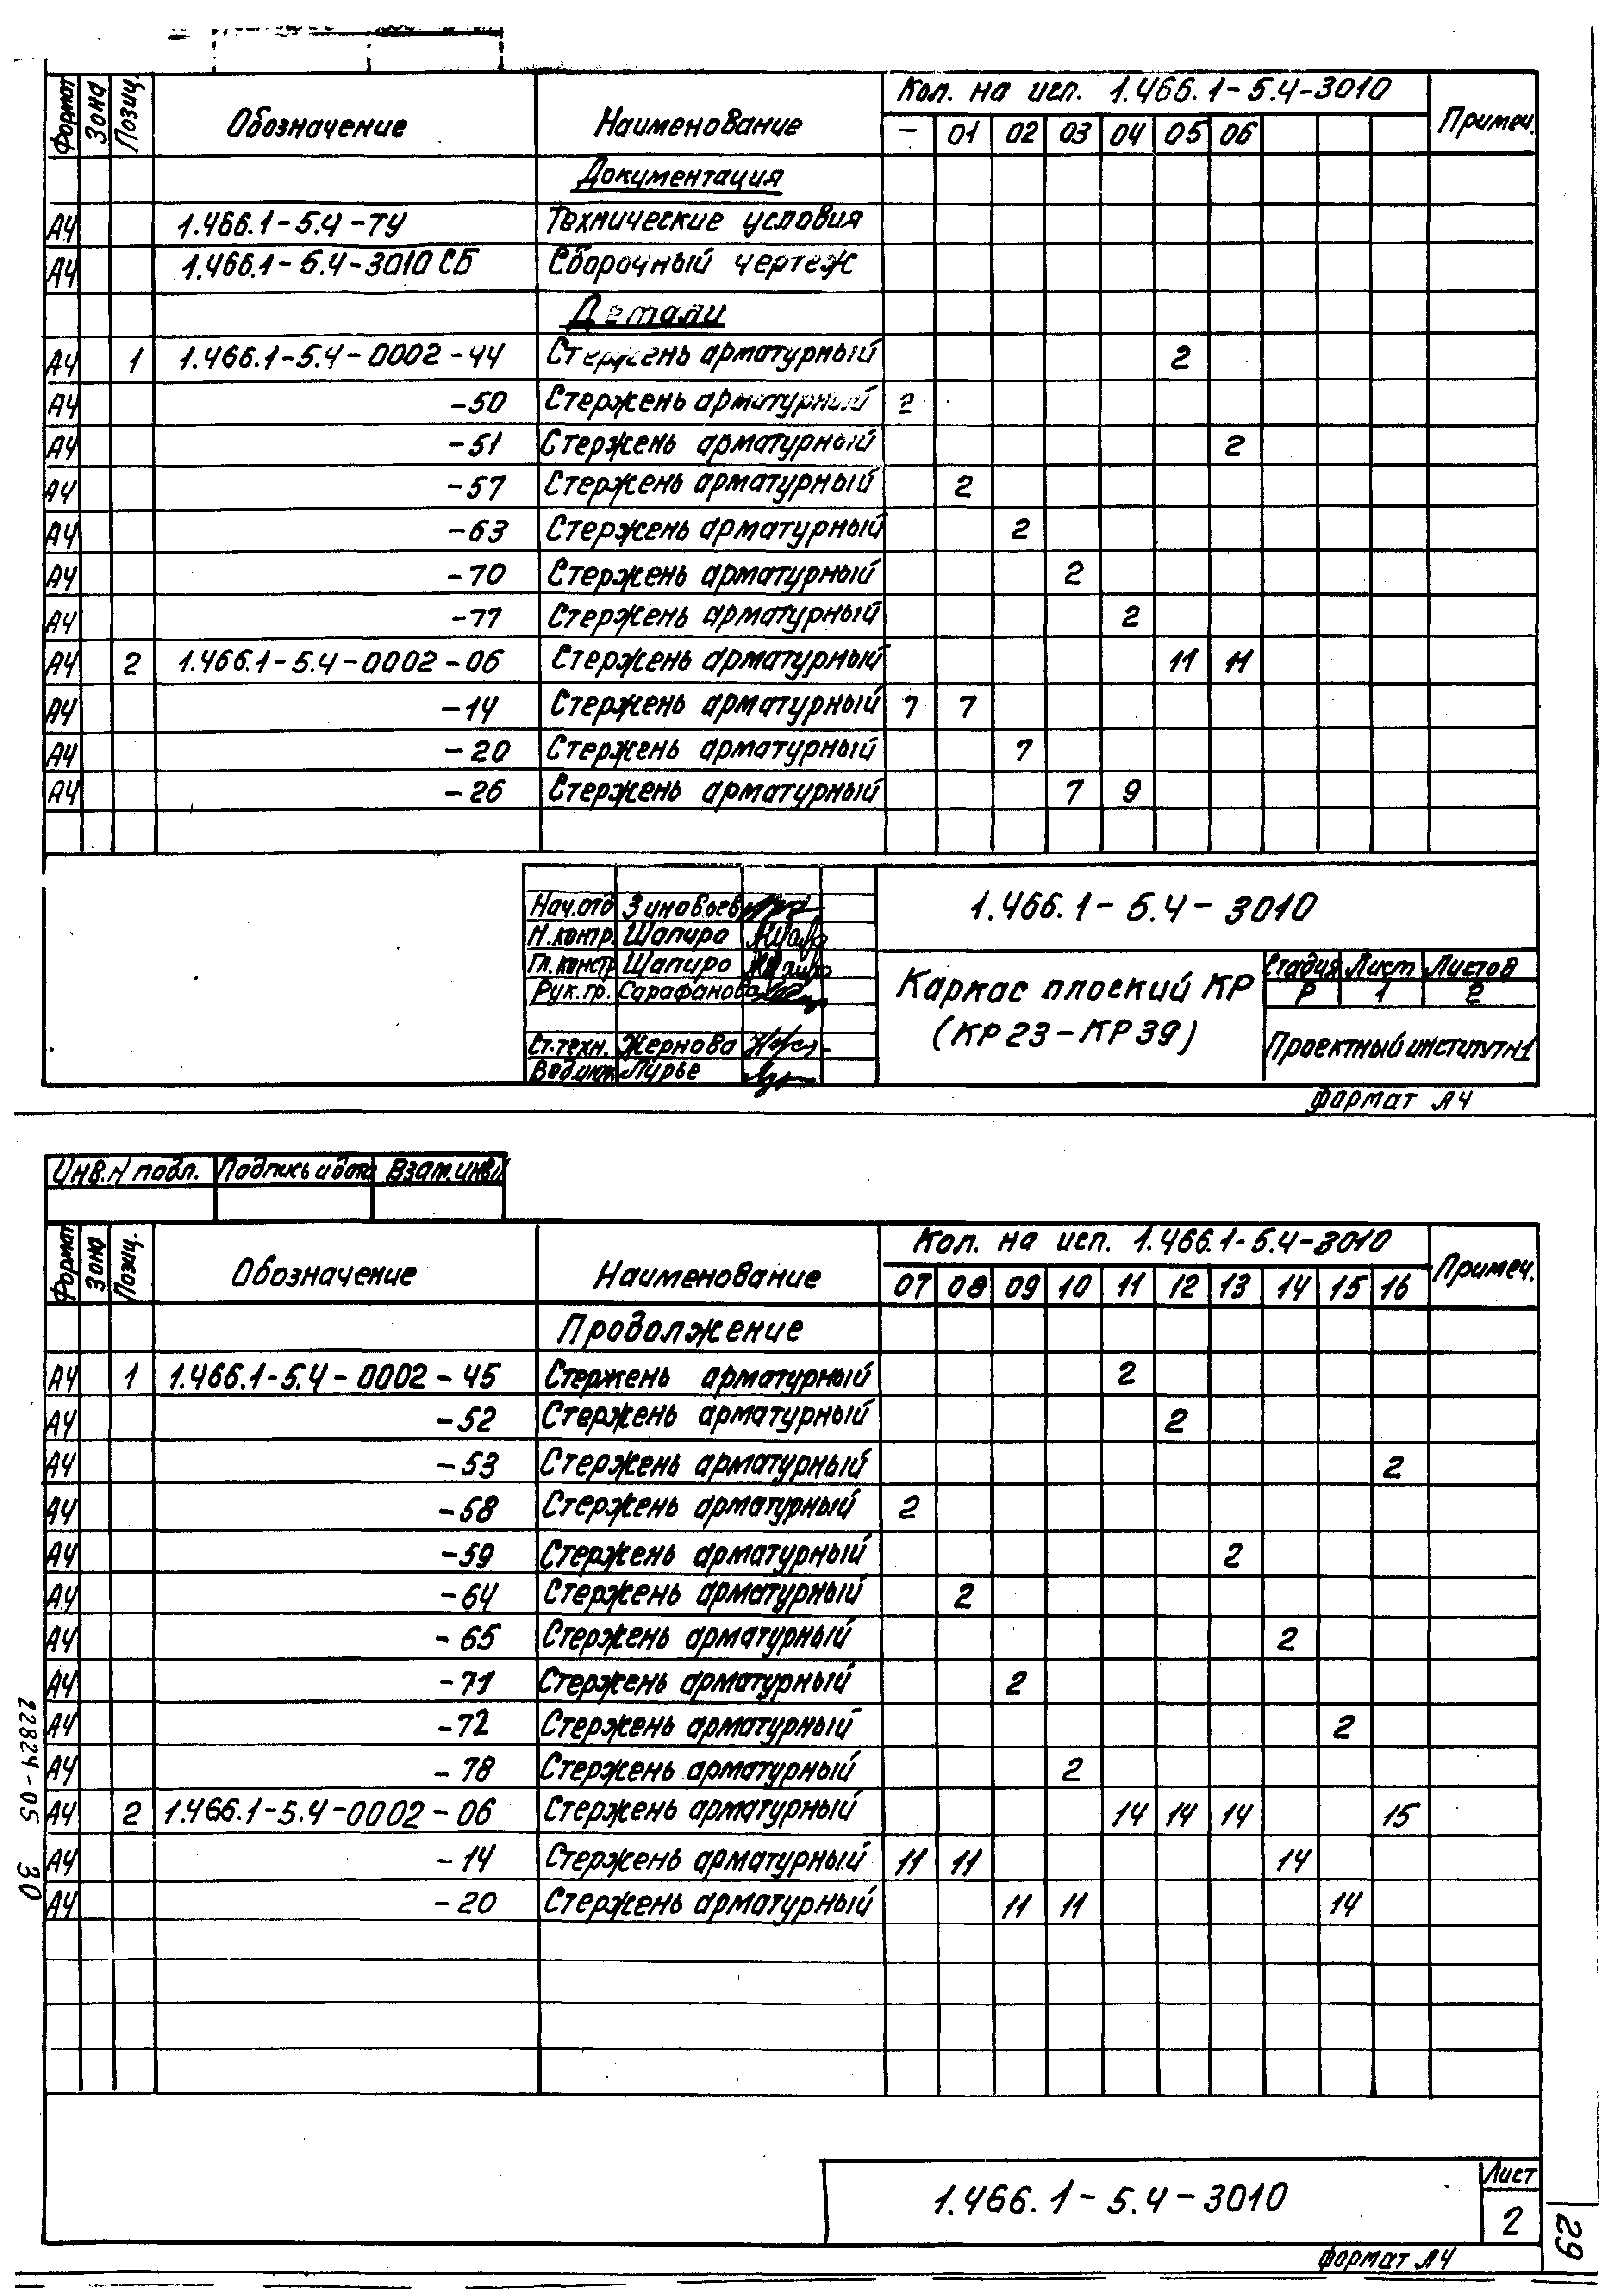 Формат Зона Позиц. Обозначение Наименование Кол. на исп. 1.466.1-5.4-3010 Примеч.
— 01 02 03 04 05 06
Документация
А4 1.466.1-5.4-ТУ Технические условия
А4 1.466.1-5.4-3010 СБ Сборочный чертеж
Детали
А4 1 1.466.1-5.4-0002-44 Стержень арматурный 2
А4 -50 Стержень арматурный 2
А4 -51 Стержень арматурный 2
А4 -57 Стержень арматурный 2
А4 -63 Стержень арматурный 2
А4 -70 Стержень арматурный 2
А4 -77 Стержень арматурный 2
А4 2 1.466.1-5.4-0002-06 Стержень арматурный 11 11
А4 -14 Стержень арматурный 7 7
А4 -20 Стержень арматурный 7
А4 -26 Стержень арматурный 7 9
Нач.отд Зиновьев
Н.контр. Шапиро
Гл.констр Шапиро
Рук.гр. Сарафанова
Ст.техн. Жернова
Вед.инж Лурье
1.466.1-5.4-3010
Каркас плоский КР
(КР23-КР39)
Стадия Лист Листов
Р 1 2
Проектный институт №1
Формат А4
Инв.№ подл. Подпись и дата Взам.инв.№
Формат Зона Позиц. Обозначение Наименование Кол. на исп. 1.466.1-5.4-3010 Примеч.
07 08 09 10 11 12 13 14 15 16
Продолжение
А4 1 1.466.1-5.4-0002-45 Стержень арматурный 2
А4 -52 Стержень арматурный 2
А4 -53 Стержень арматурный 2
А4 -58 Стержень арматурный 2
А4 -59 Стержень арматурный 2
А4 -64 Стержень арматурный 2
А4 -65 Стержень арматурный 2
А4 -71 Стержень арматурный 2
А4 -72 Стержень арматурный 2
А4 -78 Стержень арматурный 2
А4 2 1.466.1-5.4-0002-06 Стержень арматурный 14 14 14 15
А4 -14 Стержень арматурный 11 11 14
А4 -20 Стержень арматурный 11 11 14
22824-05 30
1.466.1-5.4-3010
Лист
2
Формат А4
29